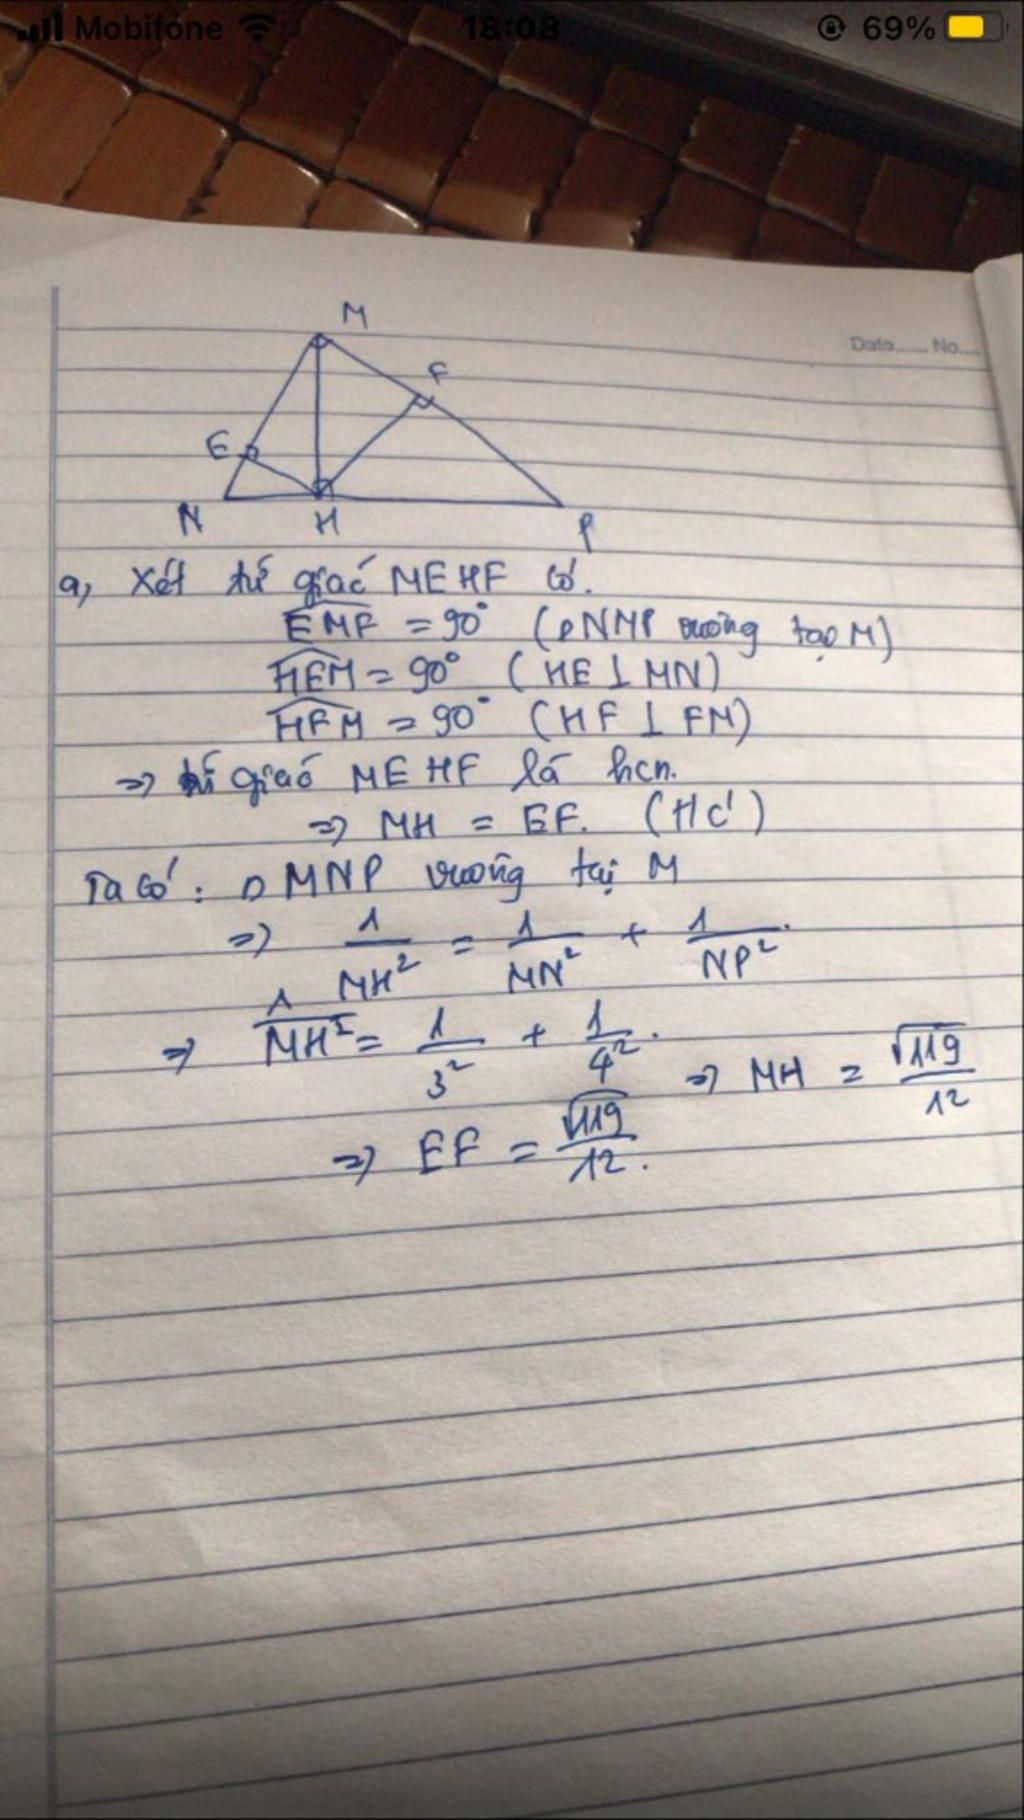 Mobifone 18:08 69%
Date...... No....
M
F
E
N H P
a, Xét tứ giác MEHF có.
EMF = 90° (ΔNMP vuông tạo M)
HEM = 90° (HE ⊥ MN)
HFM = 90° (HF ⊥ FM)
=> tứ giác MEHF là hcn.
=> MH = EF. (HC')
Ta có: Δ MNP vuông tại M
=> 1/MH² = 1/MN² + 1/NP²
=> 1/MH² = 1/3² + 1/4². => MH = √119/12
=> EF = √119/12.